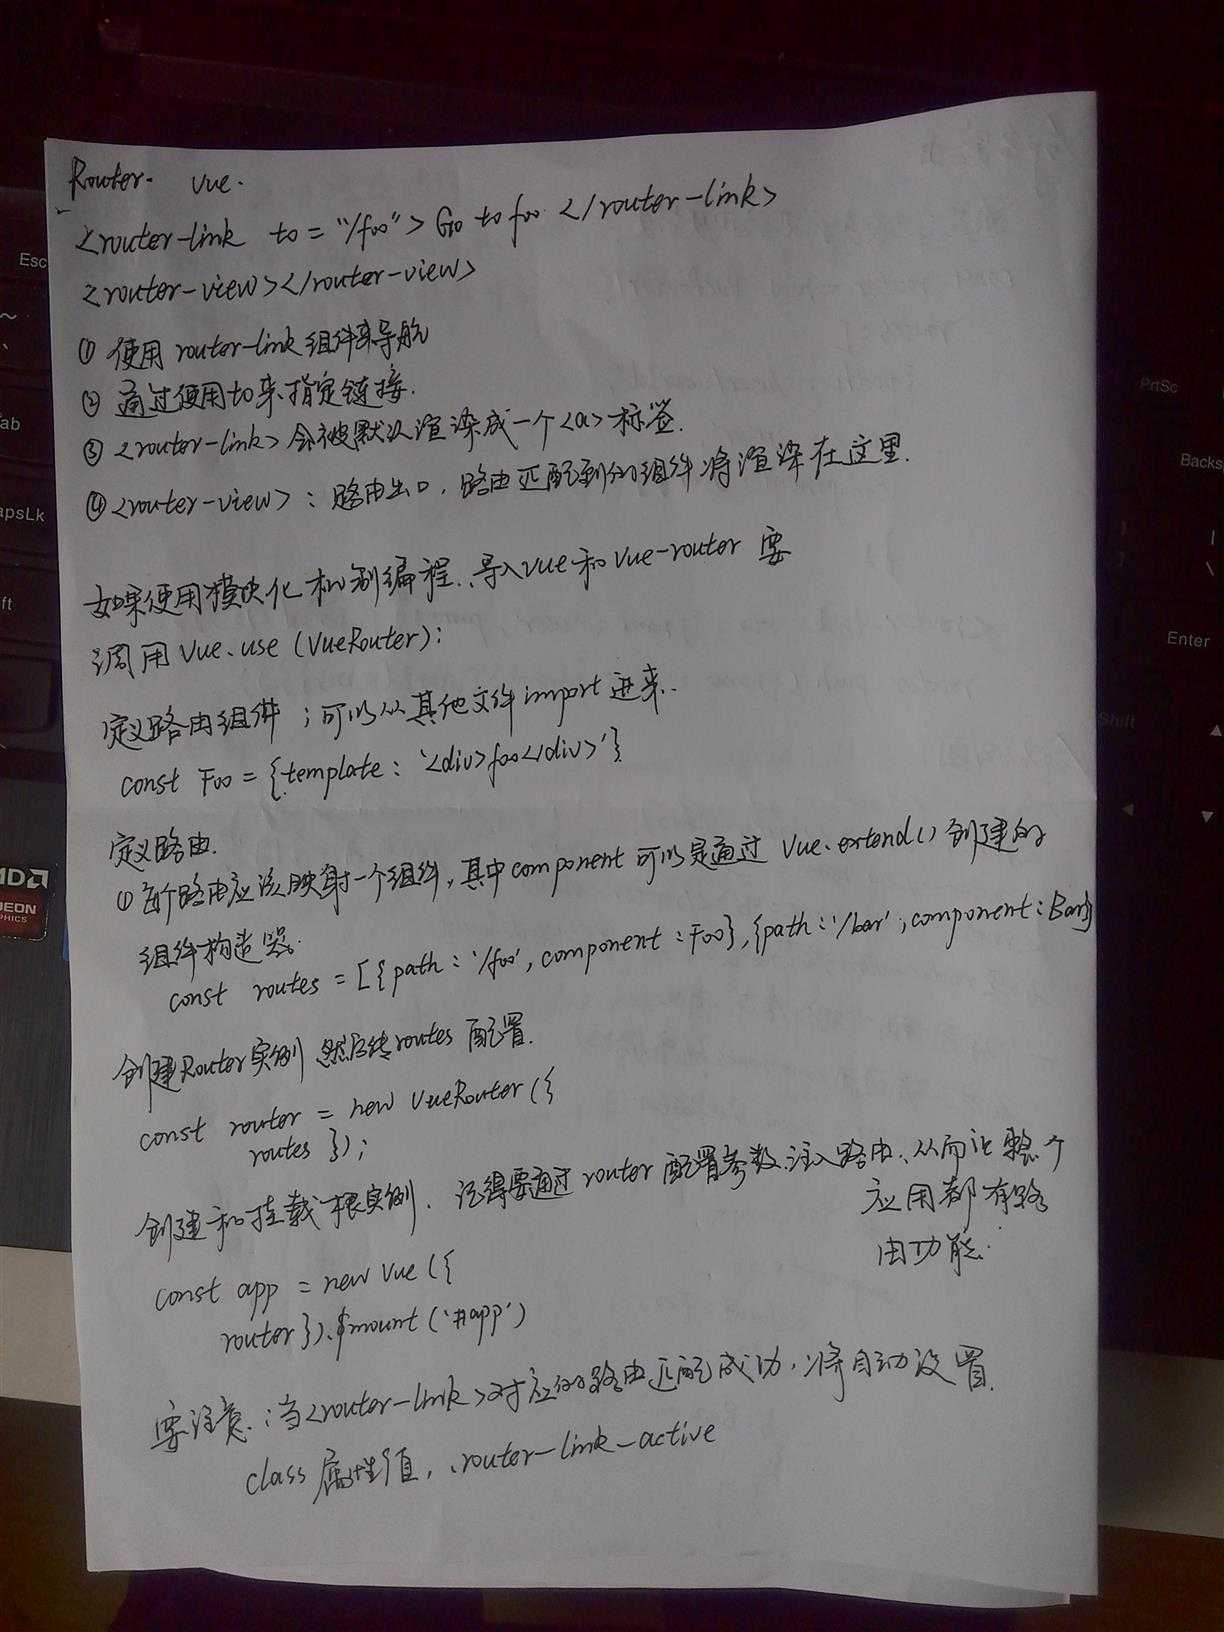 Router. Vue.
<router-link to="/foo"> Go to foo </router-link>
<router-view></router-view>
① 使用 router-link 组件来导航
② 通过使用to来指定链接.
③ <router-link> 会被默认渲染成一个<a>标签.
④ <router-view>: 路由出口, 路由匹配到的组件将渲染在这里.
如果使用模块化机制编程, 导入Vue和Vue-router 要
调用 Vue.use (VueRouter);
定义路由组件 ; 可以从其他文件import 进来.
const Foo = {template: '<div>foo</div>'}
定义路由.
① 每个路由应该映射一个组件, 其中component 可以是通过 Vue.extend() 创建的
组件构造器.
const routes = [{path: '/foo', component: Foo}, {path: '/bar', component: Bar}
创建Router实例 然后传routes 配置.
const router = new VueRouter ({
routes });
创建和挂载根实例. 记得要通过 router 配置参数注入路由, 从而让整个
应用都有路
由功能.
const app = new Vue ({
router }).$mount ('#app')
要注意: 当<router-link>对应的路由匹配成功, 将自动设置
class 属性值, .router-link-active
Esc
Tab
CapsLk
Shift
PrtSc
Backs
Enter
Shift
AMD
RADEON
GRAPHICS